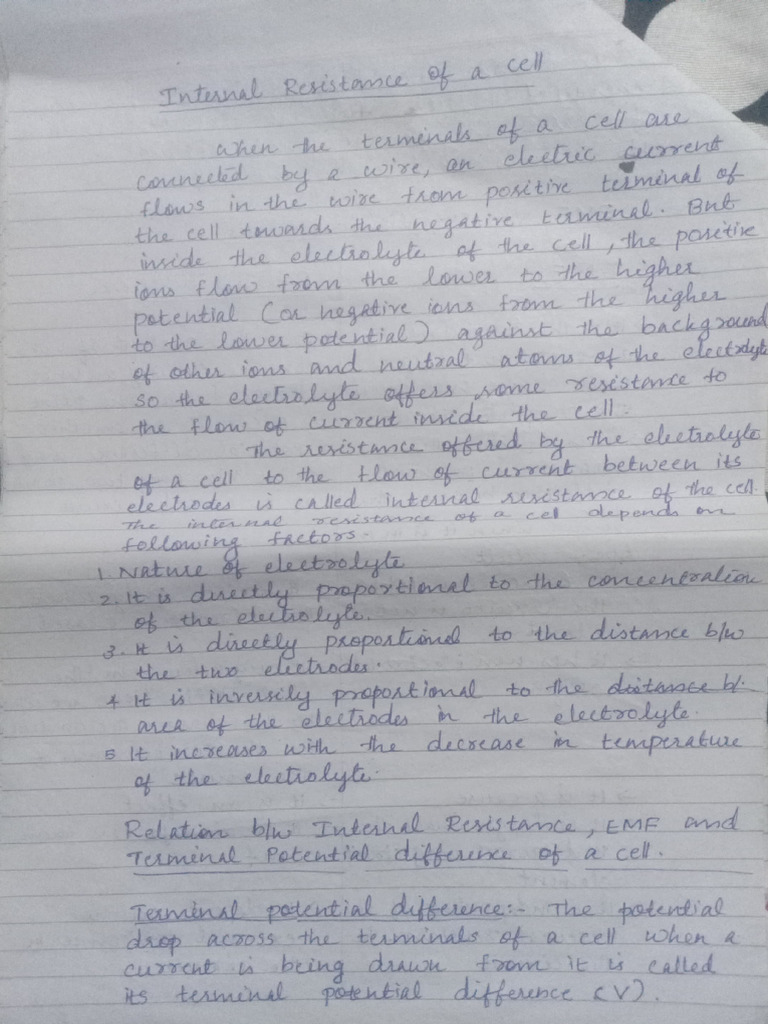 Internal Resistance of a cell
when the terminals of a cell are
connected by a wire, an electric current
flows in the wire from positive terminal of
the cell towards the negative terminal. But
inside the electrolyte of the cell, the positive
ions flow from the lower to the higher
potential (or negative ions from the higher
to the lower potential) against the background
of other ions and neutral atoms of the electrolyte
so the electrolyte offers some resistance to
the flow of current inside the cell.
The resistance offered by the electrolyte
of a cell to the flow of current between its
electrodes is called internal resistance of the cell.
The internal resistance of a cell depends on
following factors.
1. Nature of electrolyte
2. It is directly proportional to the concentration
of the electrolyte.
3. It is directly proportional to the distance b/w
the two electrodes.
4 It is inversily proportional to the distance b/.
area of the electrodes in the electrolyte.
5 It increases with the decrease in temperature
of the electrolyte.
Relation b/w Internal Resistance, EMF and
Terminal Potential difference of a cell.
Terminal potential difference:- The potential
drop across the terminals of a cell when a
current is being drawn from it is called
its terminal potential difference (V).